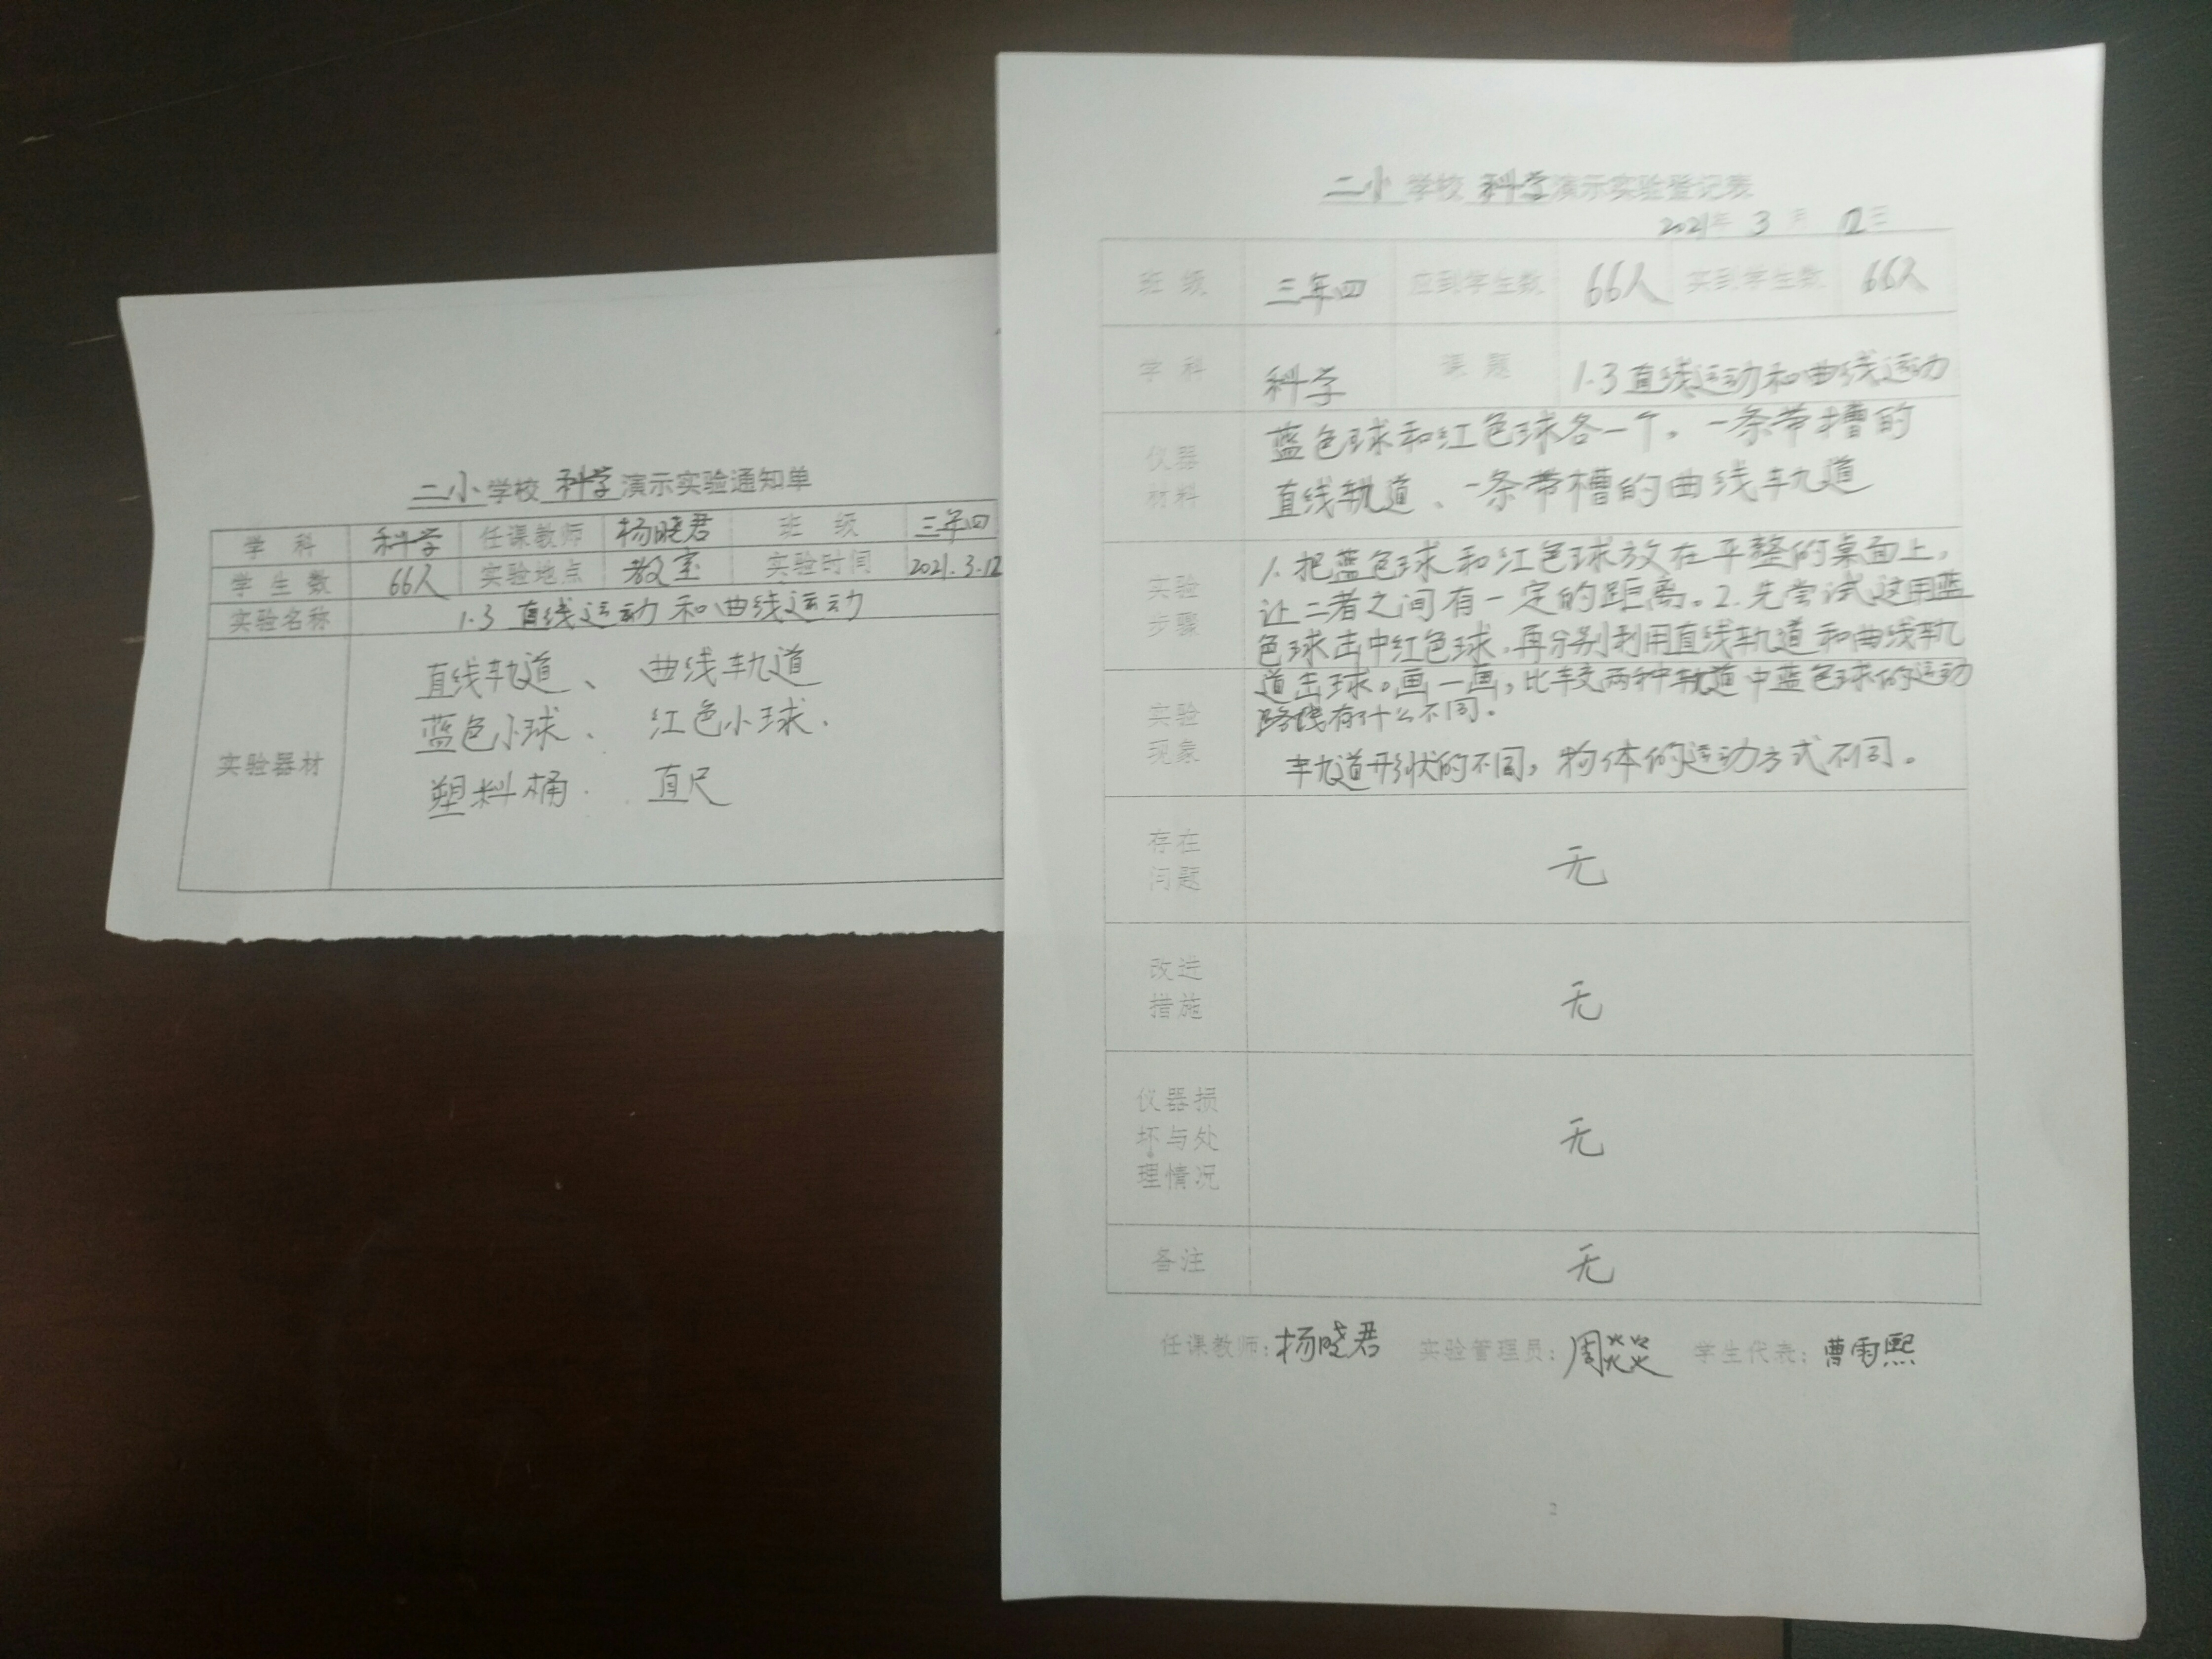 二小学校科学演示实验通知单
学科 科学 任课教师 杨晓君 班级 三年四
学生数 66人 实验地点 教室 实验时间 2021.3.12
实验名称 1.3直线运动和曲线运动
实验器材
直线轨道、曲线轨道
蓝色小球、红色小球、
塑料桶、直尺
二小学校科学演示实验登记表
2021年3月12日
班级 三年四 应到学生数 66人 实到学生数 66人
学科 科学 课题 1.3直线运动和曲线运动
仪器
材料
蓝色球和红色球各一个,一条带槽的
直线轨道、一条带槽的曲线轨道
实验
步骤
1.把蓝色球和红色球放在平整的桌面上,
让二者之间有一定的距离。2.先尝试这用蓝
色球击中红色球,再分别利用直线轨道和曲线轨
道击球。画一画,比较两种轨道中蓝色球的运动
路线有什么不同。
实验
现象
轨道形状的不同,物体的运动方式不同。
存在
问题
无
改进
措施
无
仪器损
坏与处
理情况
无
备注 无
任课教师:杨晓君 实验管理员:周燚 学生代表:曹雨熙
2